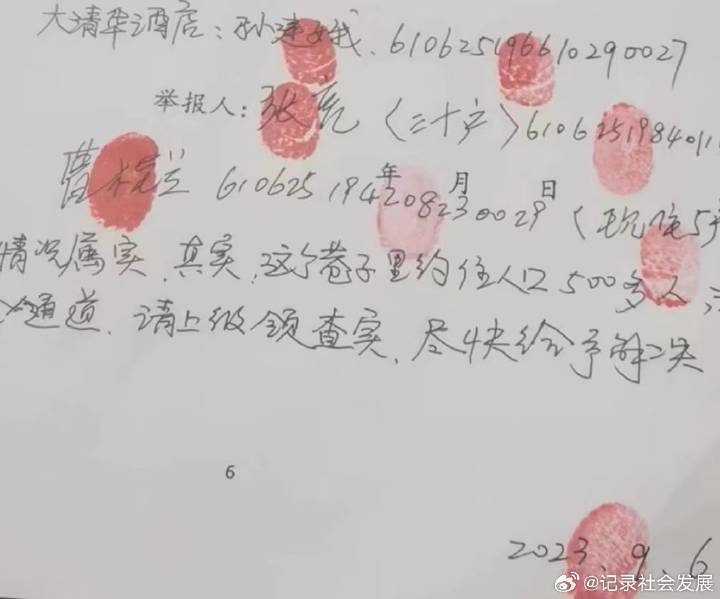 大清华酒店：孙建娥、610625196610290027
举报人：张亮〈三十户〉6106251984011
年 月 日
曹 兰 610625194208230029（现住5
情况属实，真实，这个巷子里约住人口500多人
通道，请上级领查实，尽快给予解决
6
2023.9.6
@记录社会发展